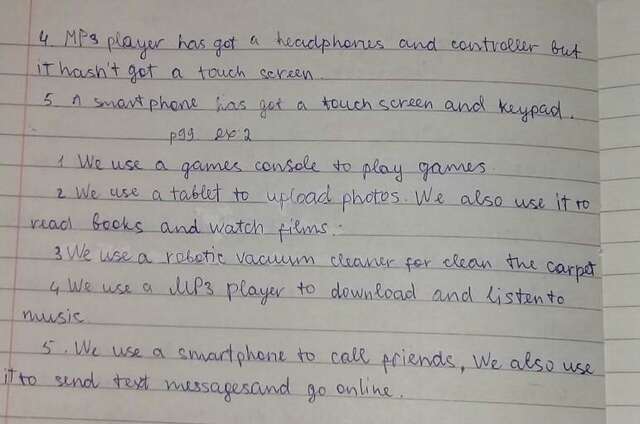 4 MP3 player has got a headphones and controller but
it hasn't got a touch screen.
5. A smartphone has got a touch screen and keypad.
p99 ex 2
1 We use a games console to play games.
2 We use a tablet to upload photos. We also use it to
read books and watch films.
3 We use a robotic vacuum cleaner for clean the carpet
4 We use a MP3 player to download and listen to
music.
5. We use a smartphone to call friends, We also use
it to send text messagesand go online.